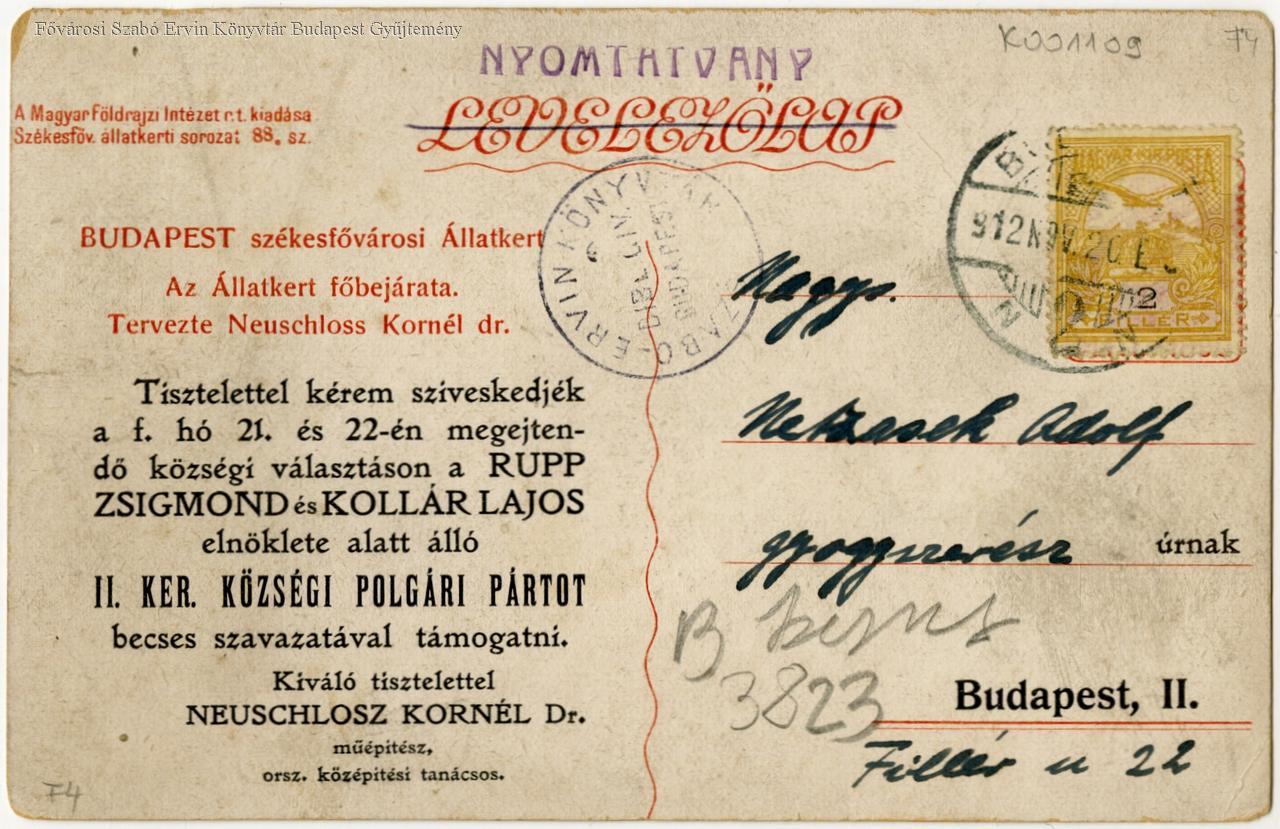 Fővárosi Szabó Ervin Könyvtár Budapest Gyűjtemény
K001109
F4
NYOMTATVÁNY
LEVELEZŐLAP
A Magyar Földrajzi Intézet r.t. kiadása
Székesfőv. állatkerti sorozat 88. sz.
BUDAPEST székesfővárosi Állatkert
Az Állatkert főbejárata.
Tervezte Neuschloss Kornél dr.
Tisztelettel kérem sziveskedjék
a f. hó 21. és 22-én megejten-
dő községi választáson a RUPP
ZSIGMOND és KOLLÁR LAJOS
elnöklete alatt álló
II. KER. KÖZSÉGI POLGÁRI PÁRTOT
becses szavazatával támogatni.
Kiváló tisztelettel
NEUSCHLOSZ KORNÉL Dr.
műépitész,
orsz. középitési tanácsos.
F4
SZABÓ ERVIN KÖNYVTÁR
BUDAPEST
912 NOV. 20
MAGYAR KIR. POSTA
2
FILLÉR
Nagys.
Adolf
gyógyszerész úrnak
B
3823
Budapest, II.
Fillér u 22